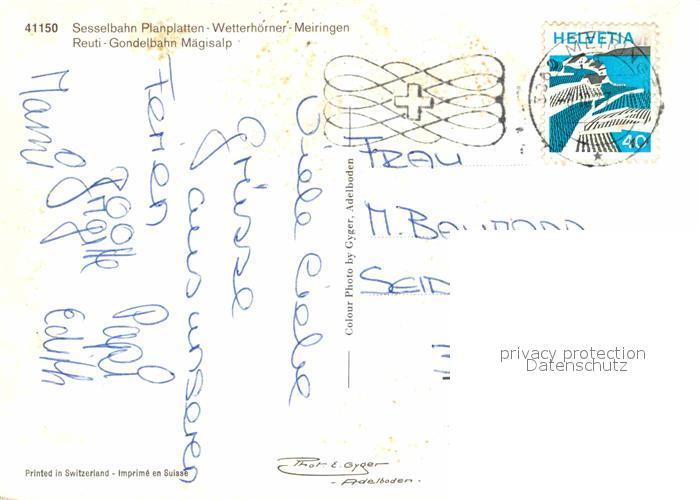 41150 Sesselbahn Planplatten - Wetterhörner - Meiringen
Reuti - Gondelbahn Mägisalp
HELVETIA
40
Viele liebe
Grüsse
aus unseren
Ferien
Edith
Colour Photo by Gyger, Adelboden
FRAU
M. BAUMANN
privacy protection
Datenschutz
Phot E. Gyger
- Adelboden -
Printed in Switzerland - Imprimé en Suisse